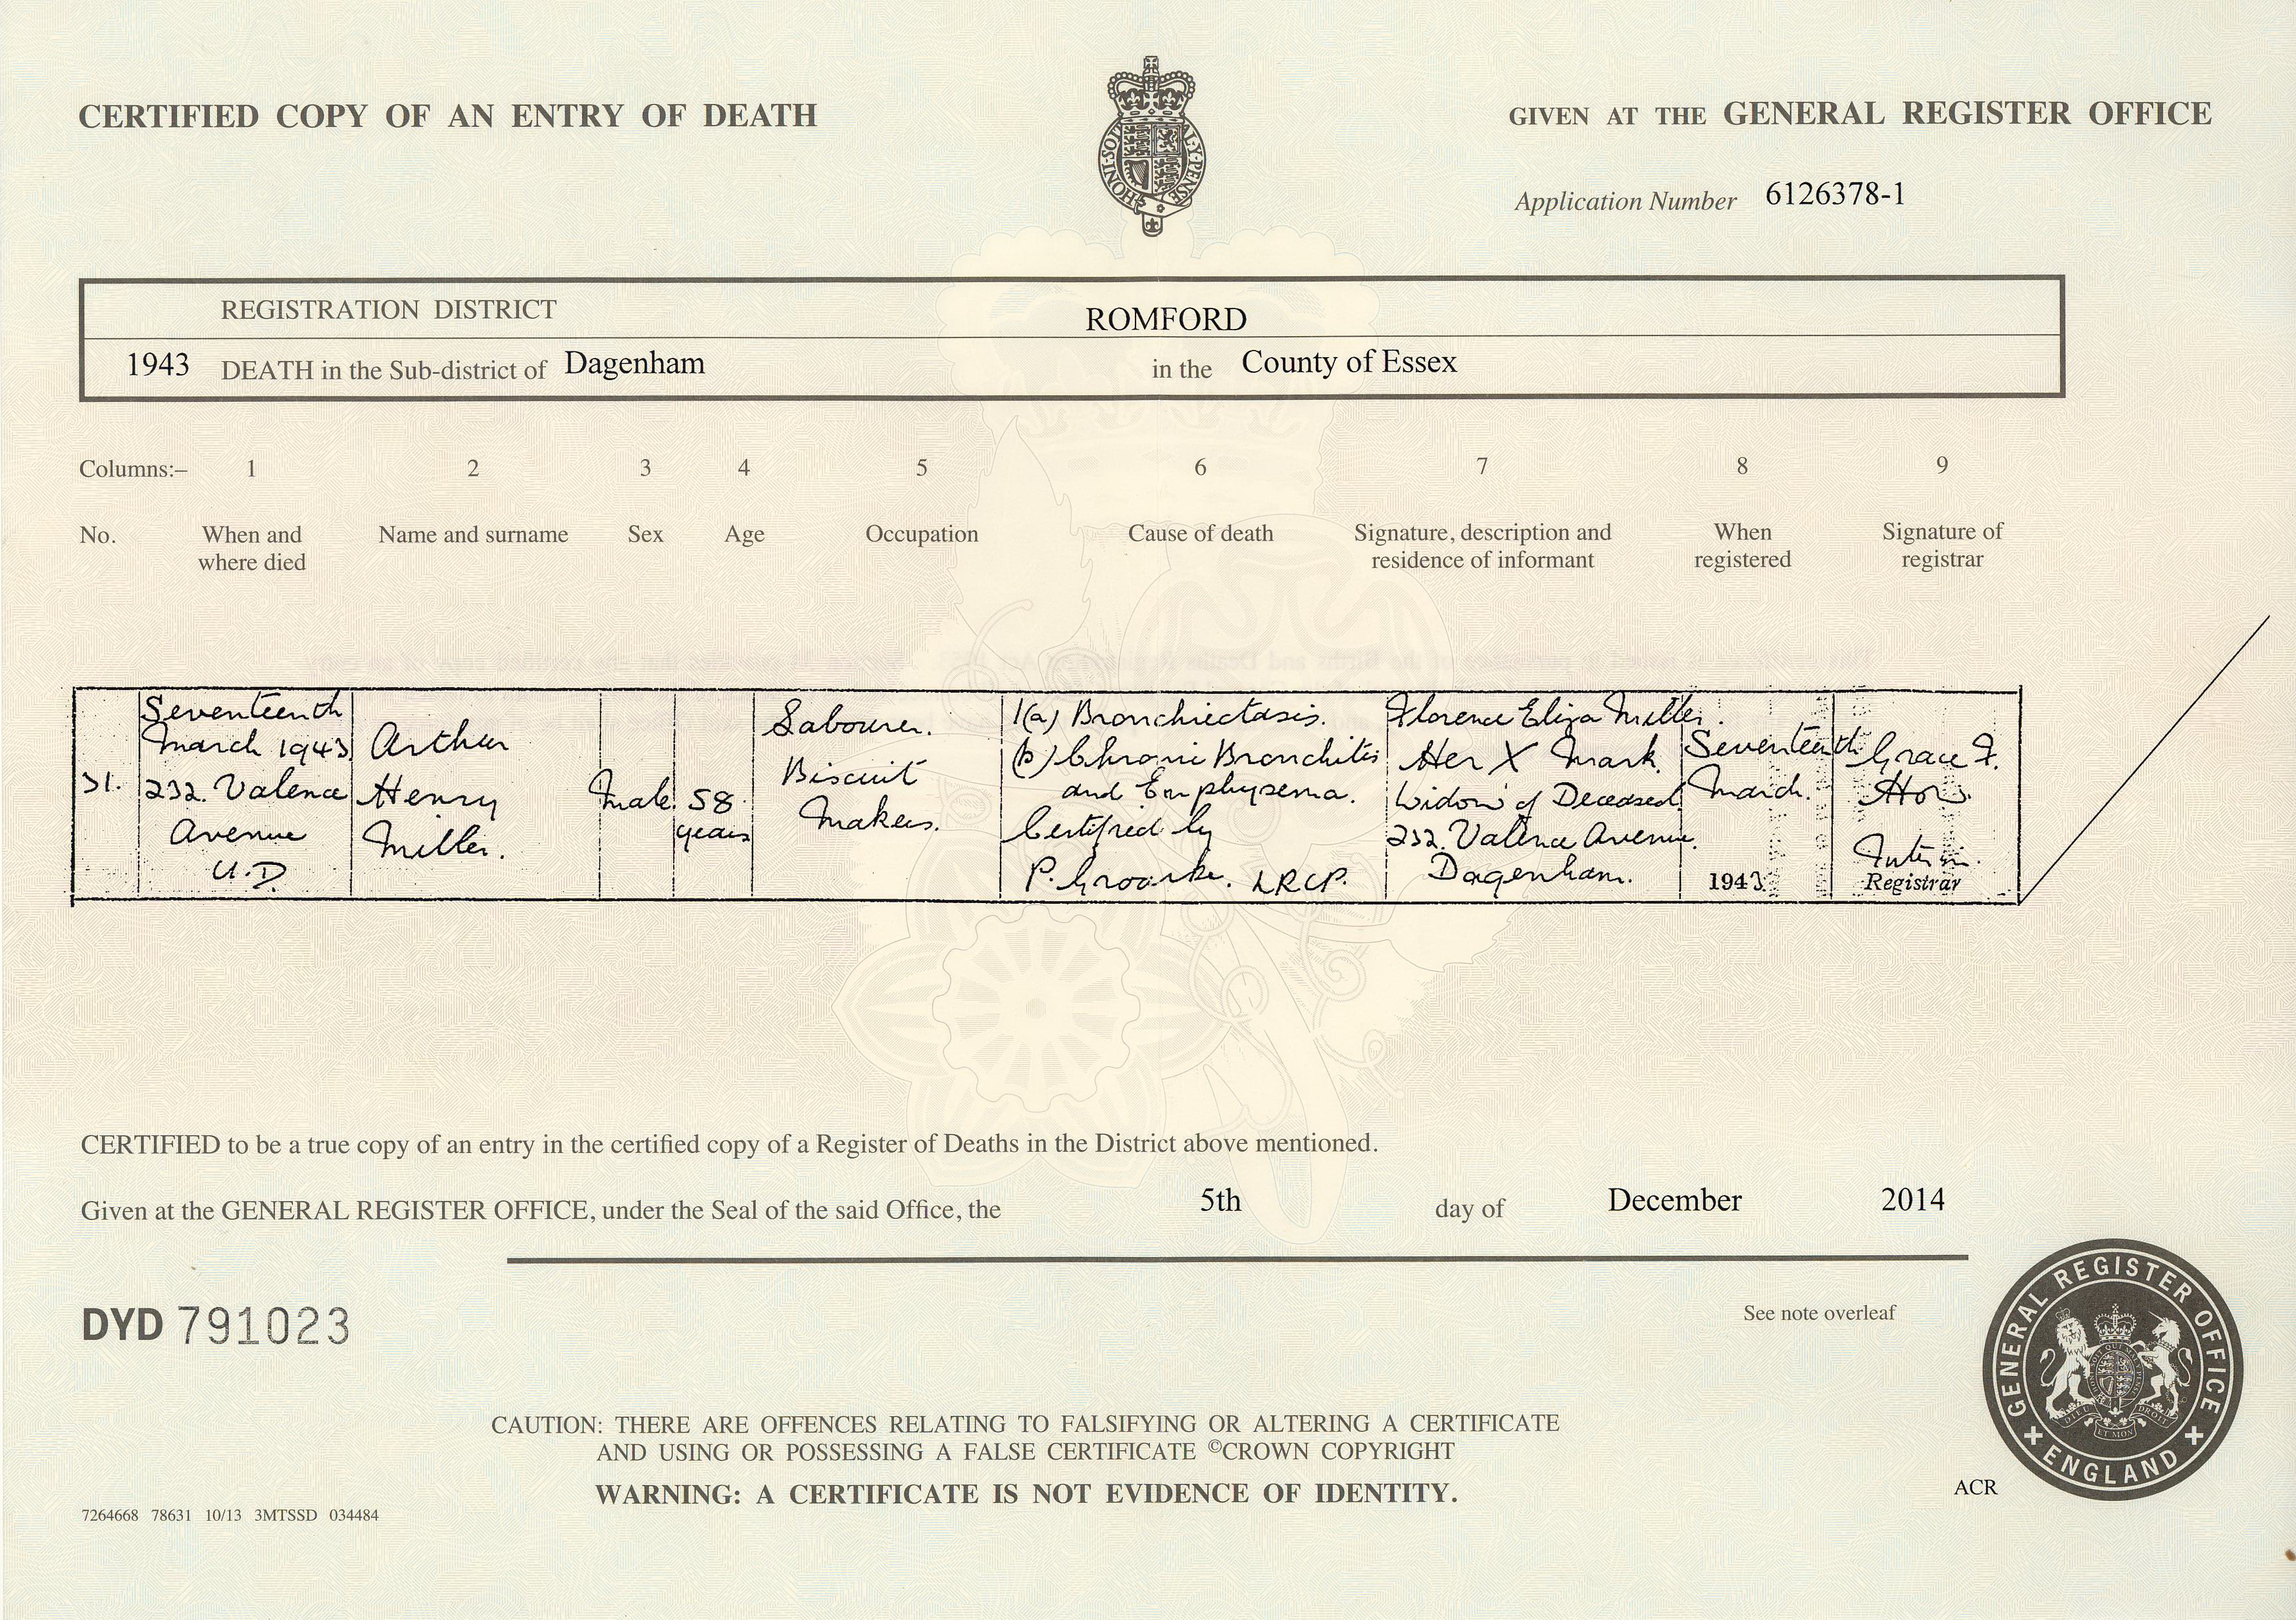 CERTIFIED COPY OF AN ENTRY OF DEATH
GIVEN AT THE GENERAL REGISTER OFFICE
HONI·SOIT
·Y·PENSE
Application Number 6126378-1
REGISTRATION DISTRICT ROMFORD
1943 DEATH in the Sub-district of Dagenham in the County of Essex
Columns:– 1 2 3 4 5 6 7 8 9
No. When and where died Name and surname Sex Age Occupation Cause of death Signature, description and residence of informant When registered Signature of registrar
31.
Seventeenth
March 1943
232. Valence
Avenue
U.D.
Arthur
Henry
Miller.
Male.
58
years
Labourer.
Biscuit
Makers.
1(a) Bronchiectasis.
(b) Chronic Bronchitis
and Emphysema.
Certified by
P. LRCP.
Florence Eliza Miller.
Her X Mark.
Widow of Deceased
232. Valence Avenue.
Dagenham.
Seventeenth
March.
1943
Grace F.
Interim.
Registrar
CERTIFIED to be a true copy of an entry in the certified copy of a Register of Deaths in the District above mentioned.
Given at the GENERAL REGISTER OFFICE, under the Seal of the said Office, the 5th day of December 2014
DYD 791023
See note overleaf
GENERAL REGISTER OFFICE
DIEU ET MON DROIT
+ ENGLAND +
CAUTION: THERE ARE OFFENCES RELATING TO FALSIFYING OR ALTERING A CERTIFICATE
AND USING OR POSSESSING A FALSE CERTIFICATE ©CROWN COPYRIGHT
WARNING: A CERTIFICATE IS NOT EVIDENCE OF IDENTITY.
ACR
7264668 78631 10/13 3MTSSD 034484